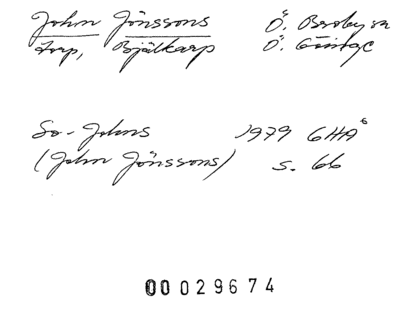 John Jönssons Ö. Broby sn
torp, Bjälkarp Ö. Göinge
So-Johns 1979 GHA
(John Jönssons) s. 66
00029674